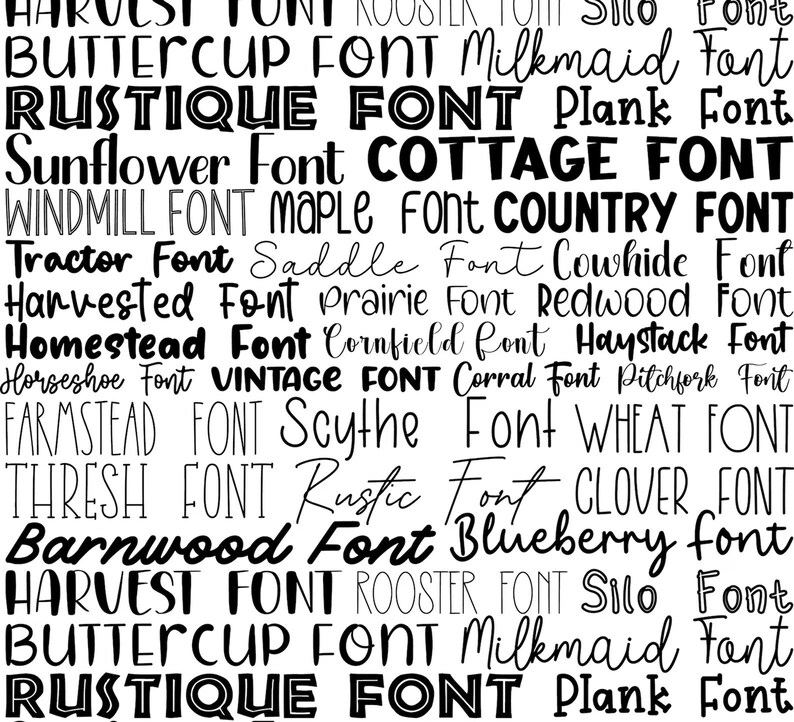 HARVEST FONT ROOSTER FONT Silo Font
BUTTERCUP FONT Milkmaid Font
RUSTIQUE FONT Plank Font
Sunflower Font COTTAGE FONT
WINDMILL FONT maple Font COUNTRY FONT
Tractor Font Saddle Font Cowhide Font
Harvested Font Prairie Font Redwood Font
Homestead Font Cornfield Font Haystack Font
Horseshoe Font VINTAGE FONT Corral Font Pitchfork Font
FARMSTEAD FONT Scythe Font WHEAT FONT
THRESH FONT Rustic Font CLOVER FONT
Barnwood Font Blueberry font
HARVEST FONT ROOSTER FONT Silo Font
BUTTERCUP FONT Milkmaid Font
RUSTIQUE FONT Plank Font